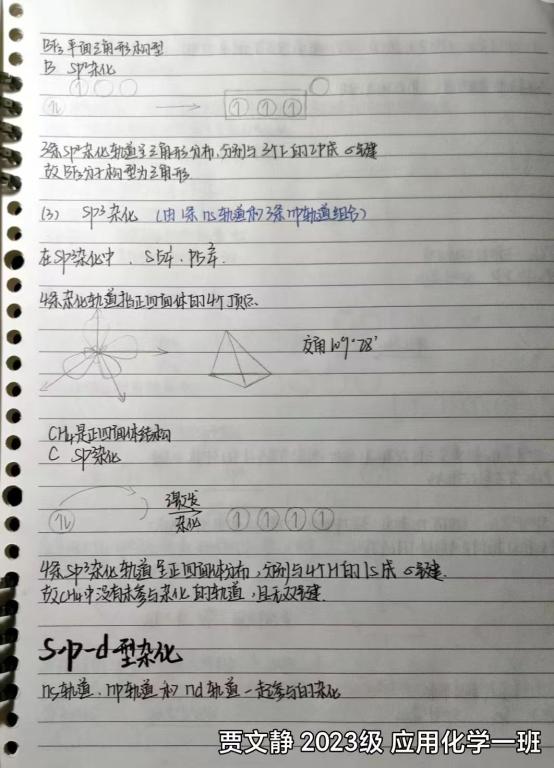 BF₃ 平面三角形构型
B sp²杂化
3条sp²杂化轨道呈三角形分布,分别与3个F的2P成σ键
故BF₃分子构型为三角形
(3) sp³杂化 (由1条ns轨道和3条np轨道组合)
在sp³杂化中, S占¼, p占¾.
4条杂化轨道指正四面体的4个顶点.
交角109°28'
CH₄是正四面体结构
C sp³杂化
激发
杂化
4条sp³杂化轨道呈正四面体分布,分别与4个H的1S成σ键.
故CH₄中没有未参与杂化的轨道,且无双键.
S-p-d型杂化
ns轨道、np轨道和nd轨道一起参与的杂化
贾文静 2023级 应用化学一班